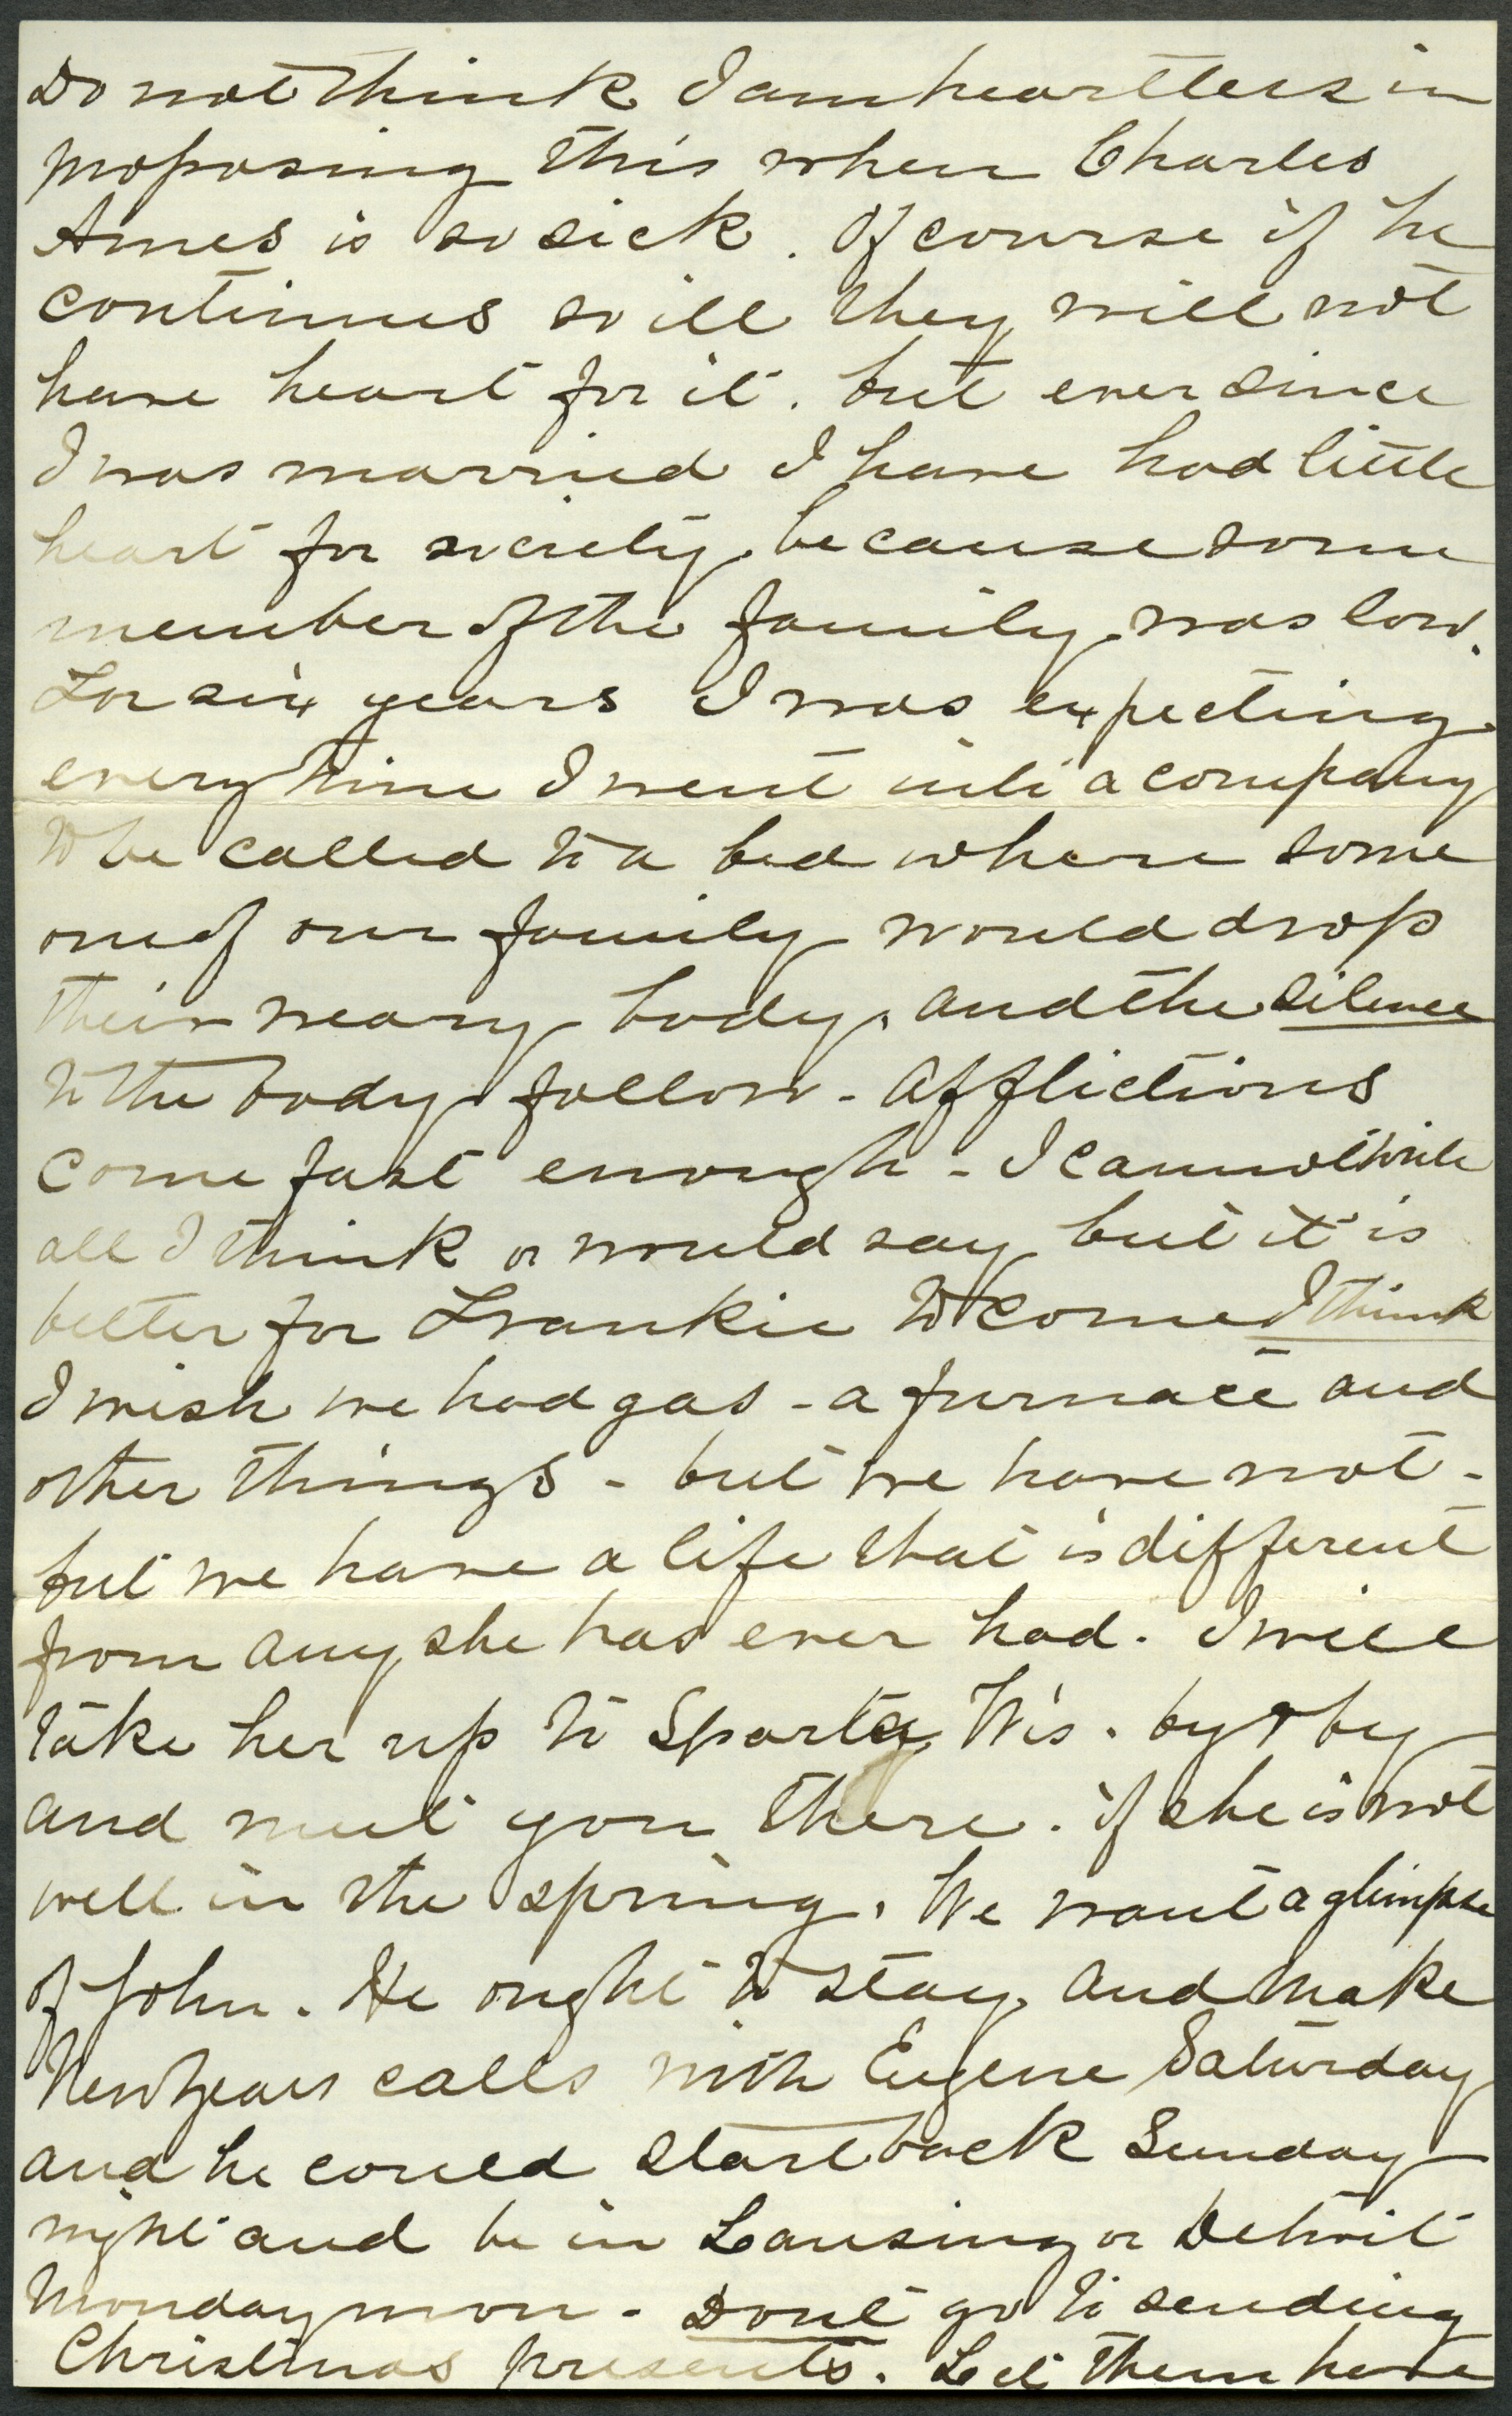 Do not think I am heartless in
proposing this when Charles
Ames is so sick. Of course if he
continues so ill they will not
have heart for it. but ever since
I was married I have had little
heart for society, because some
member of the family was low.
For six years I was expecting
every time I went into a company
to be called to a bed where some
one of our family would drop
their weary body, and the silence
to the body follow - Afflictions
come fast enough - I cannot write
all I think or would say but it is
better for Frankie to come I think
I wish we had gas - a furnace and
other things - but we have not -
but we have a life that is different
from any she has ever had. I will
take her up to Sparta Wis. by & by
and meet you there. if she is not
well in the spring. We want a glimpse
of John. He ought to stay and make
New Years calls with Eugene Saturday
and he could start back Sunday
night and be in Lansing or Detroit
Monday morn - Dont go to sending
Christmas presents. Let them here